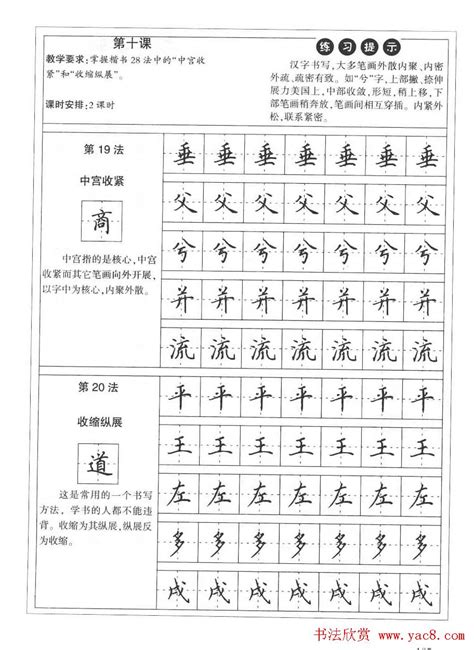 第十课
教学要求:掌握楷书28法中的“中宫收
紧”和“收缩纵展”。
课时安排:2课时
练习提示
汉字书写,大多笔画外散内聚、内密
外疏、疏密有致。如“兮”字,上部撇、捺伸
展力美国上,中部收敛,形短,稍上移,下
部笔画稍奔放,笔画间相互穿插。内紧外
松,联系紧密。
第19法
中宫收紧
商
中宫指的是核心,中宫
收紧而其它笔画向外开展,
以字中为核心,内聚外散。
垂垂垂垂垂垂垂
父父父父父父父
兮兮兮兮兮兮兮
并并并并并并并
流流流流流流流
第20法
收缩纵展
道
这是常用的一个书写
方法,学书的人都不能违
背。收缩为其纵展,纵展反
为收缩。
平平平平平平平
王王王王王王王
左左左左左左左
多多多多多多多
成成成成成成成
书法欣赏 www.yac8.com